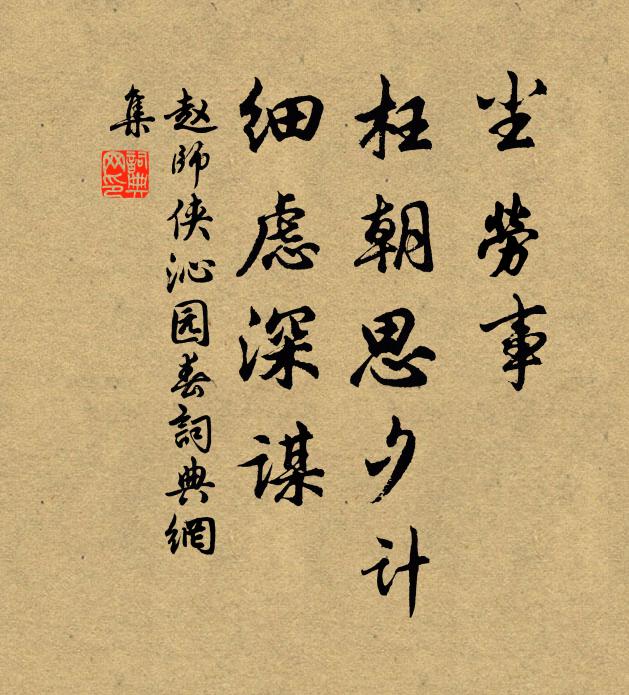 尘劳事
枉朝思夕计
细虑深谋
赵师侠沁园春詞典網
集
詞典
网印